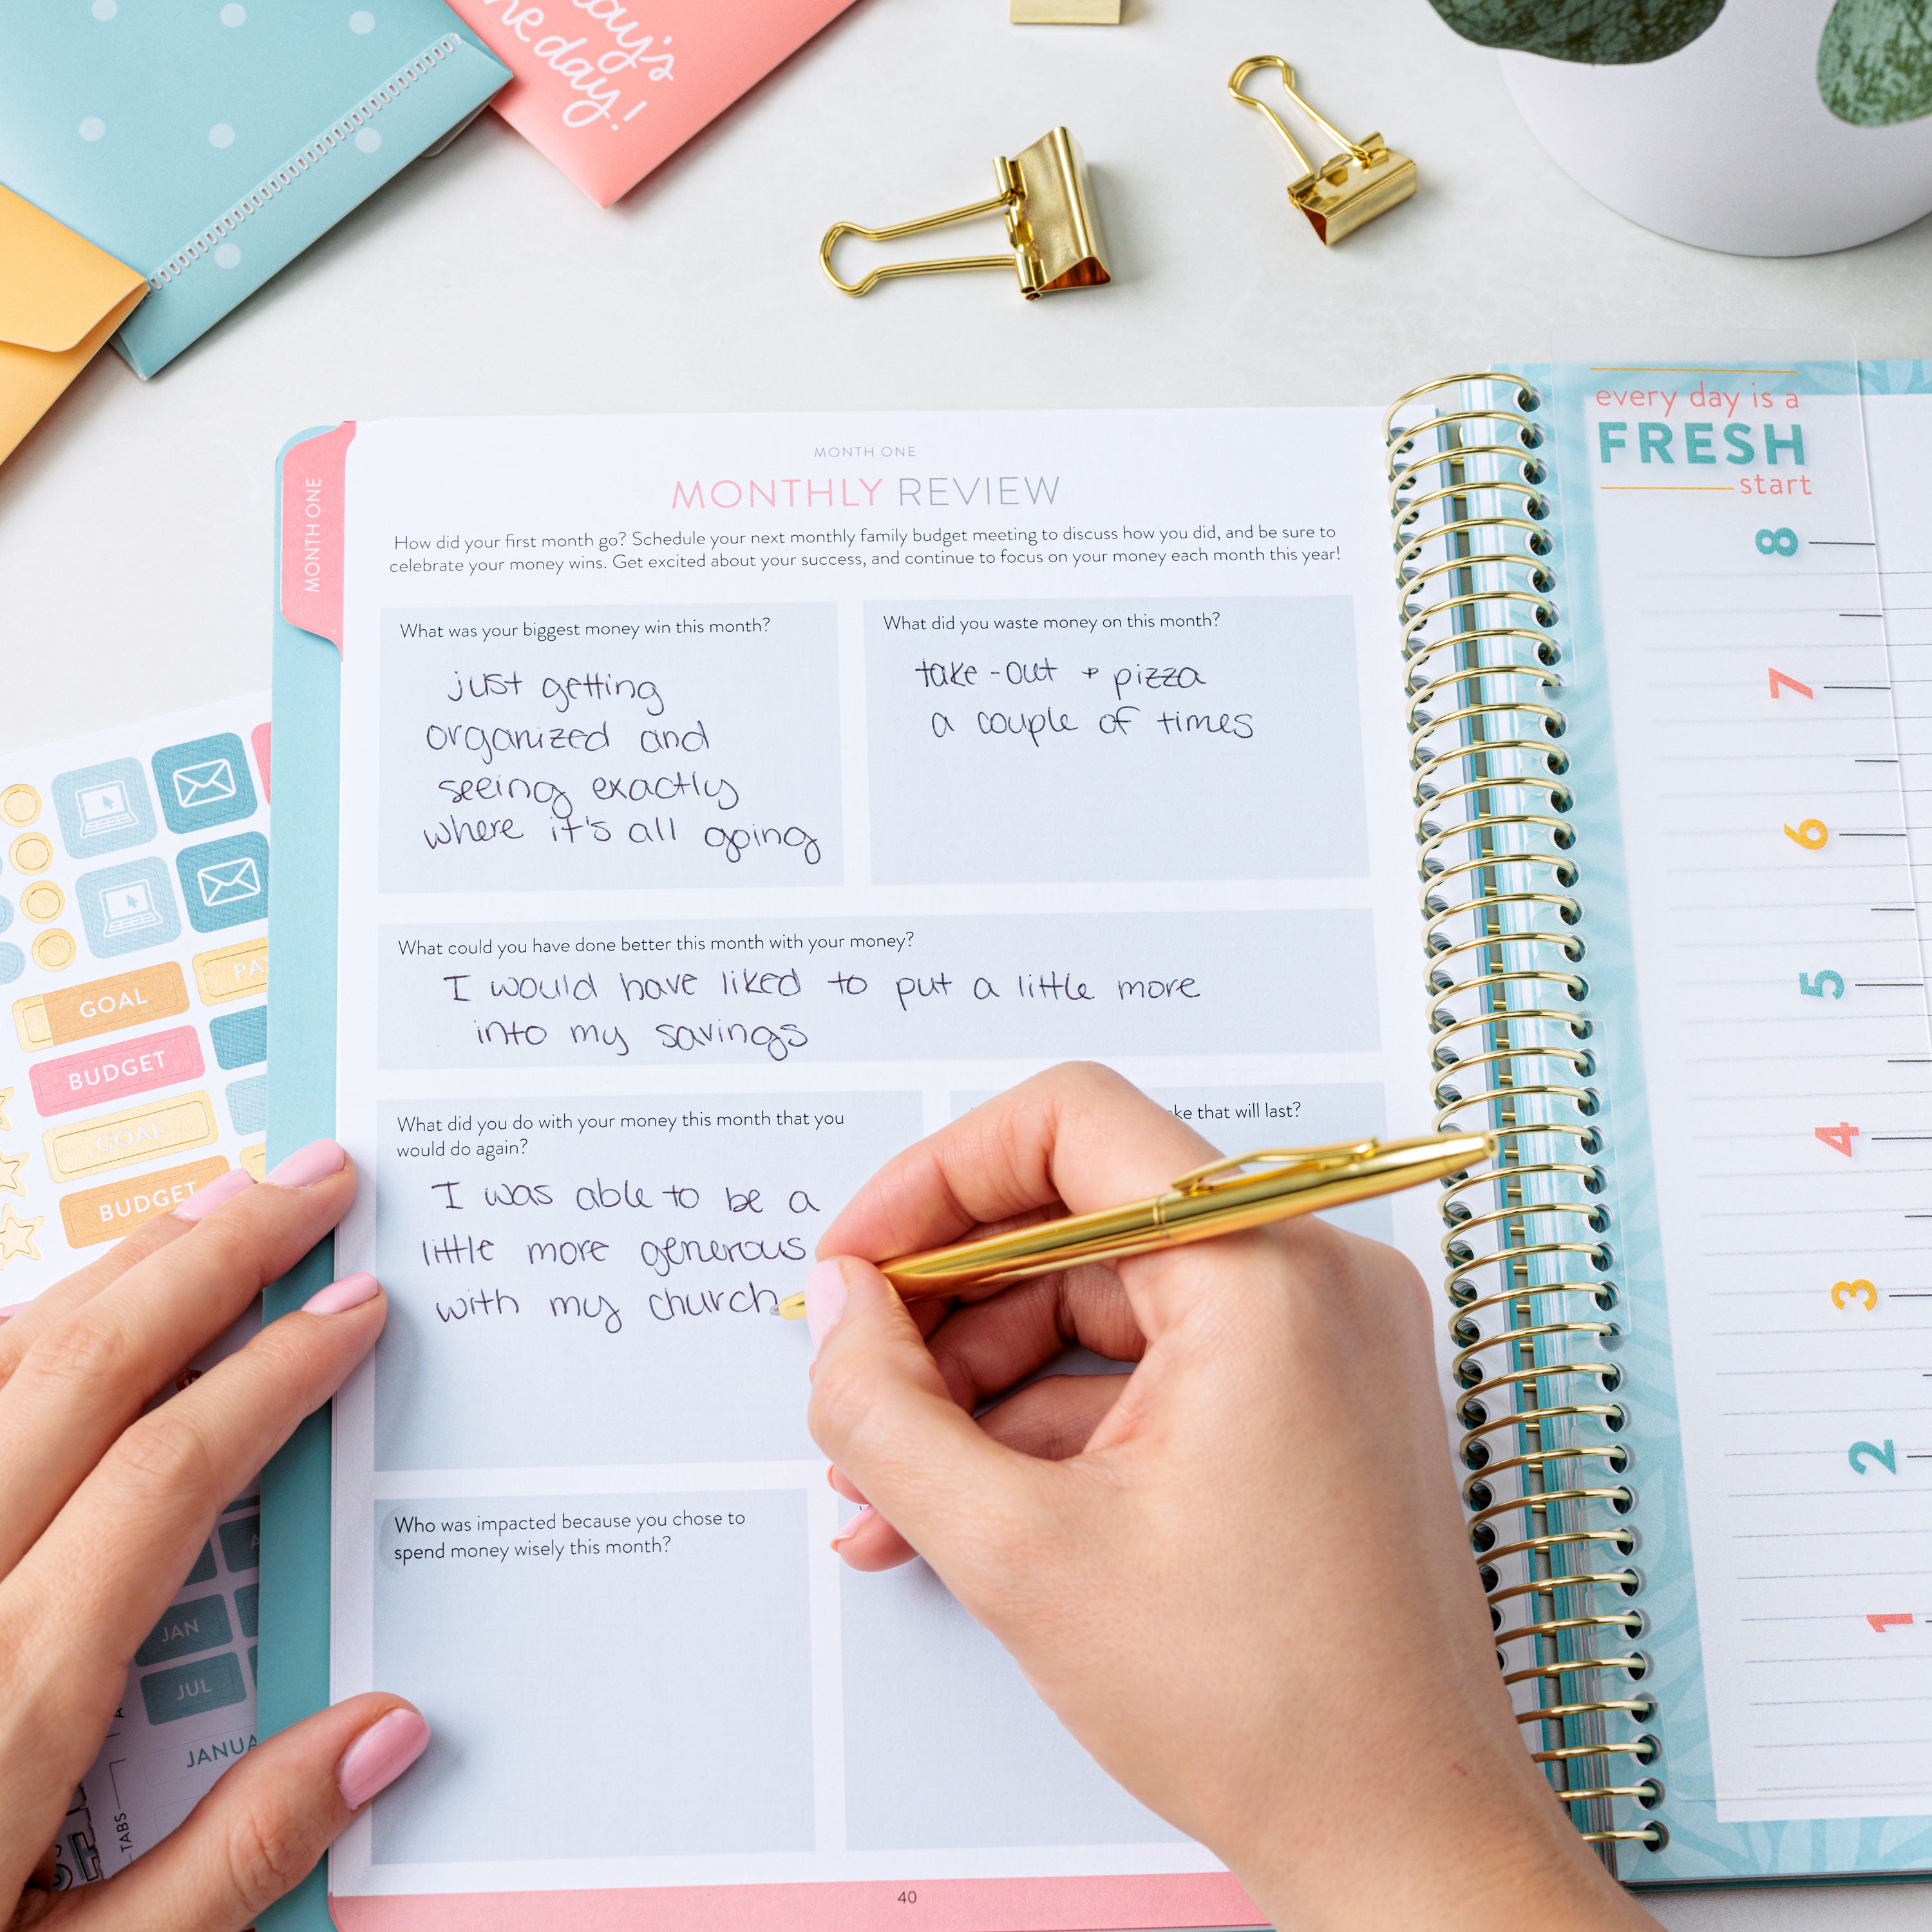 day's
day!
MONTH ONE
MONTH ONE
MONTHLY REVIEW
How did your first month go? Schedule your next monthly family budget meeting to discuss how you did, and be sure to
celebrate your money wins. Get excited about your success, and continue to focus on your money each month this year!
What was your biggest money win this month?
just getting
organized and
seeing exactly
where it's all going
What did you waste money on this month?
take-out + pizza
a couple of times
What could you have done better this month with your money?
I would have liked to put a little more
into my savings
What did you do with your money this month that you
would do again?
I was able to be a
little more generous
with my church
that will last?
Who was impacted because you chose to
spend money wisely this month?
40
every day is a
FRESH
start
8
7
6
5
4
3
2
1
GOAL
BUDGET
GOAL
BUDGET
JAN
JUL
TABS